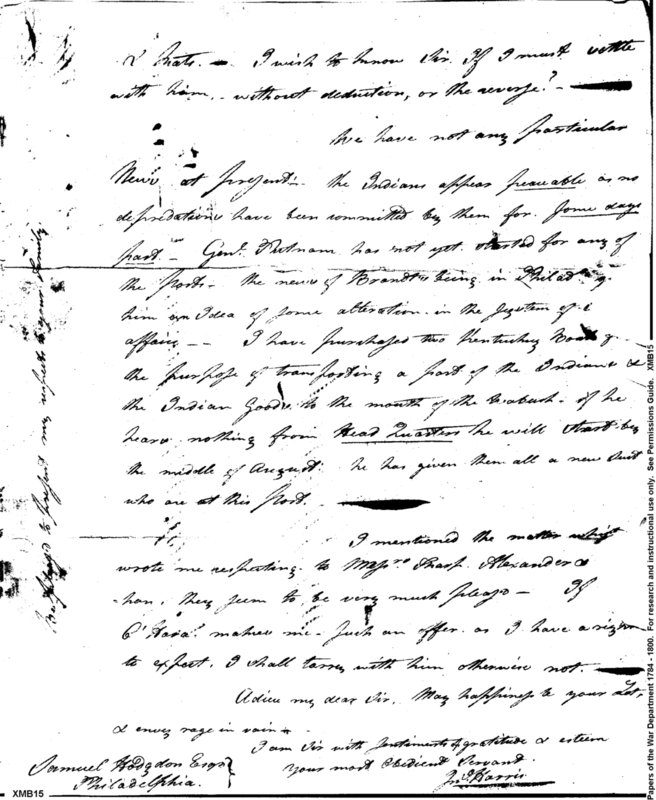 & Hats. — I wish to know Sir. If I must settle
with him, - without deduction, or the reverse? —
We have not any particular
News at present - the Indians appear peaceable as no
depredations have been committed by them for some days
past. - Genl. Putnam has not yet started for any of
the Posts - the news of Brandts being in Philada. g
him an Idea of some alteration in the System of
affairs — I have purchased two Kentucky Boats f
the purpose of transporting a part of the Indians &
the Indian Goods to the mouth of the Wabash - if he
hears nothing from Head Quarters he will start by
the middle of August. he has given them all a new Suit
who are at this Post.
I mentioned the matter
wrote me respecting to Messrs Sharp Alexander &
they seem to be very much pleased — If
O'Hara makes me such an offer as I have a right
to expect, I shall tarry with him otherwise not.
Adieu my dear Sir, May happiness be your Lot,
& envy rage in vain
I am Sir with sentiments of gratitude & esteem
Your most Obedient Servant
Jno. Harris
Samuel Hodgdon Esqr
Philadelphia.
to present my respects to your family.
XMB15
Papers of the War Department 1784 - 1800. For research and instructional use only. See Permissions Guide. XMB15